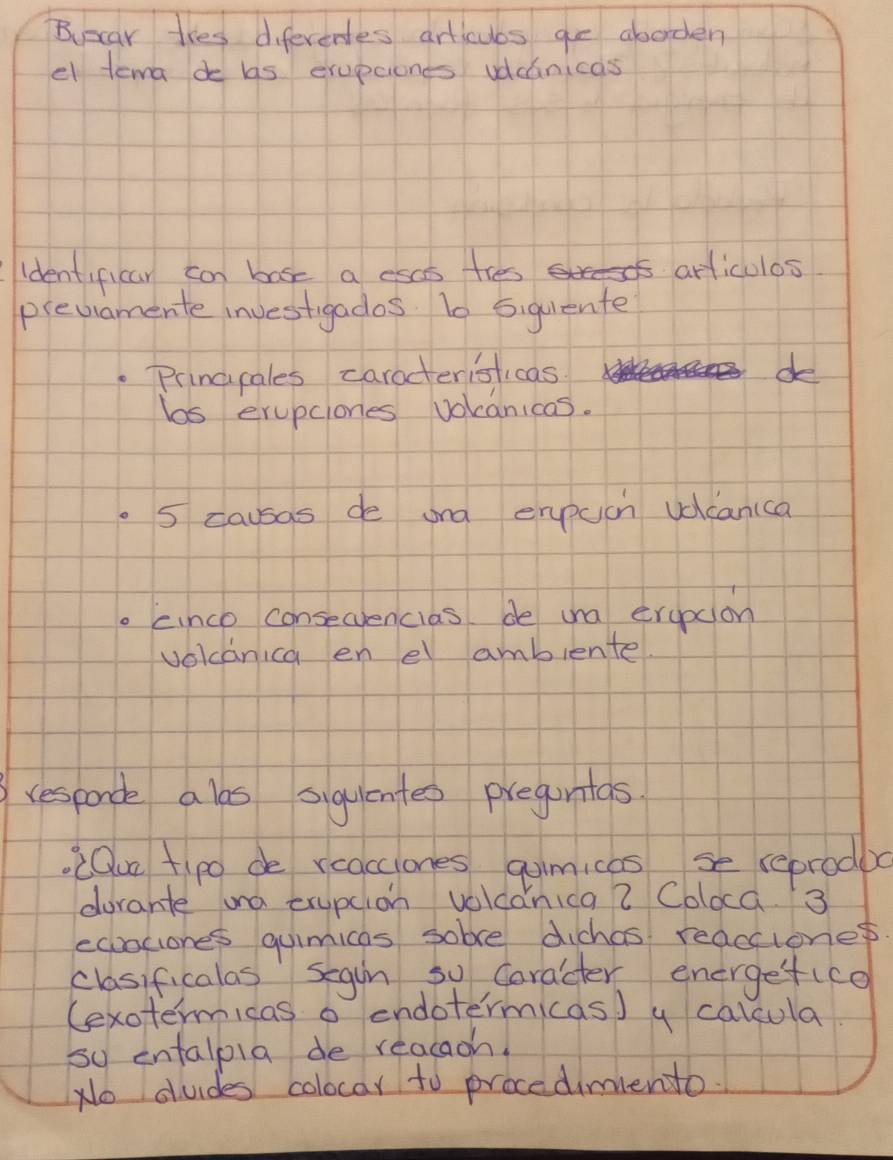 Buscar tres diferentes articulos que aborden
el tema de las erupciones volcánicas
Identificar con base a esos tres articulos
previamente investigados lo siguiente
• Principales características de
las erupciones volcánicas.
• 5 causas de una erupción volcánica
• cinco consecuencias de una erupción
volcánica en el ambiente.
3 responde a las siguientes preguntas.
• ¿Que tipo de reacciones quimicas se reproduc
durante una erupción volcánica? Coloca 3
ecuaciones quimicas sobre dichas reacciones.
clasificalas según su carácter energético
(exotérmicas o endotérmicas) y calcula
su entalpia de reacción.
No olvides colocar tu procedimiento.